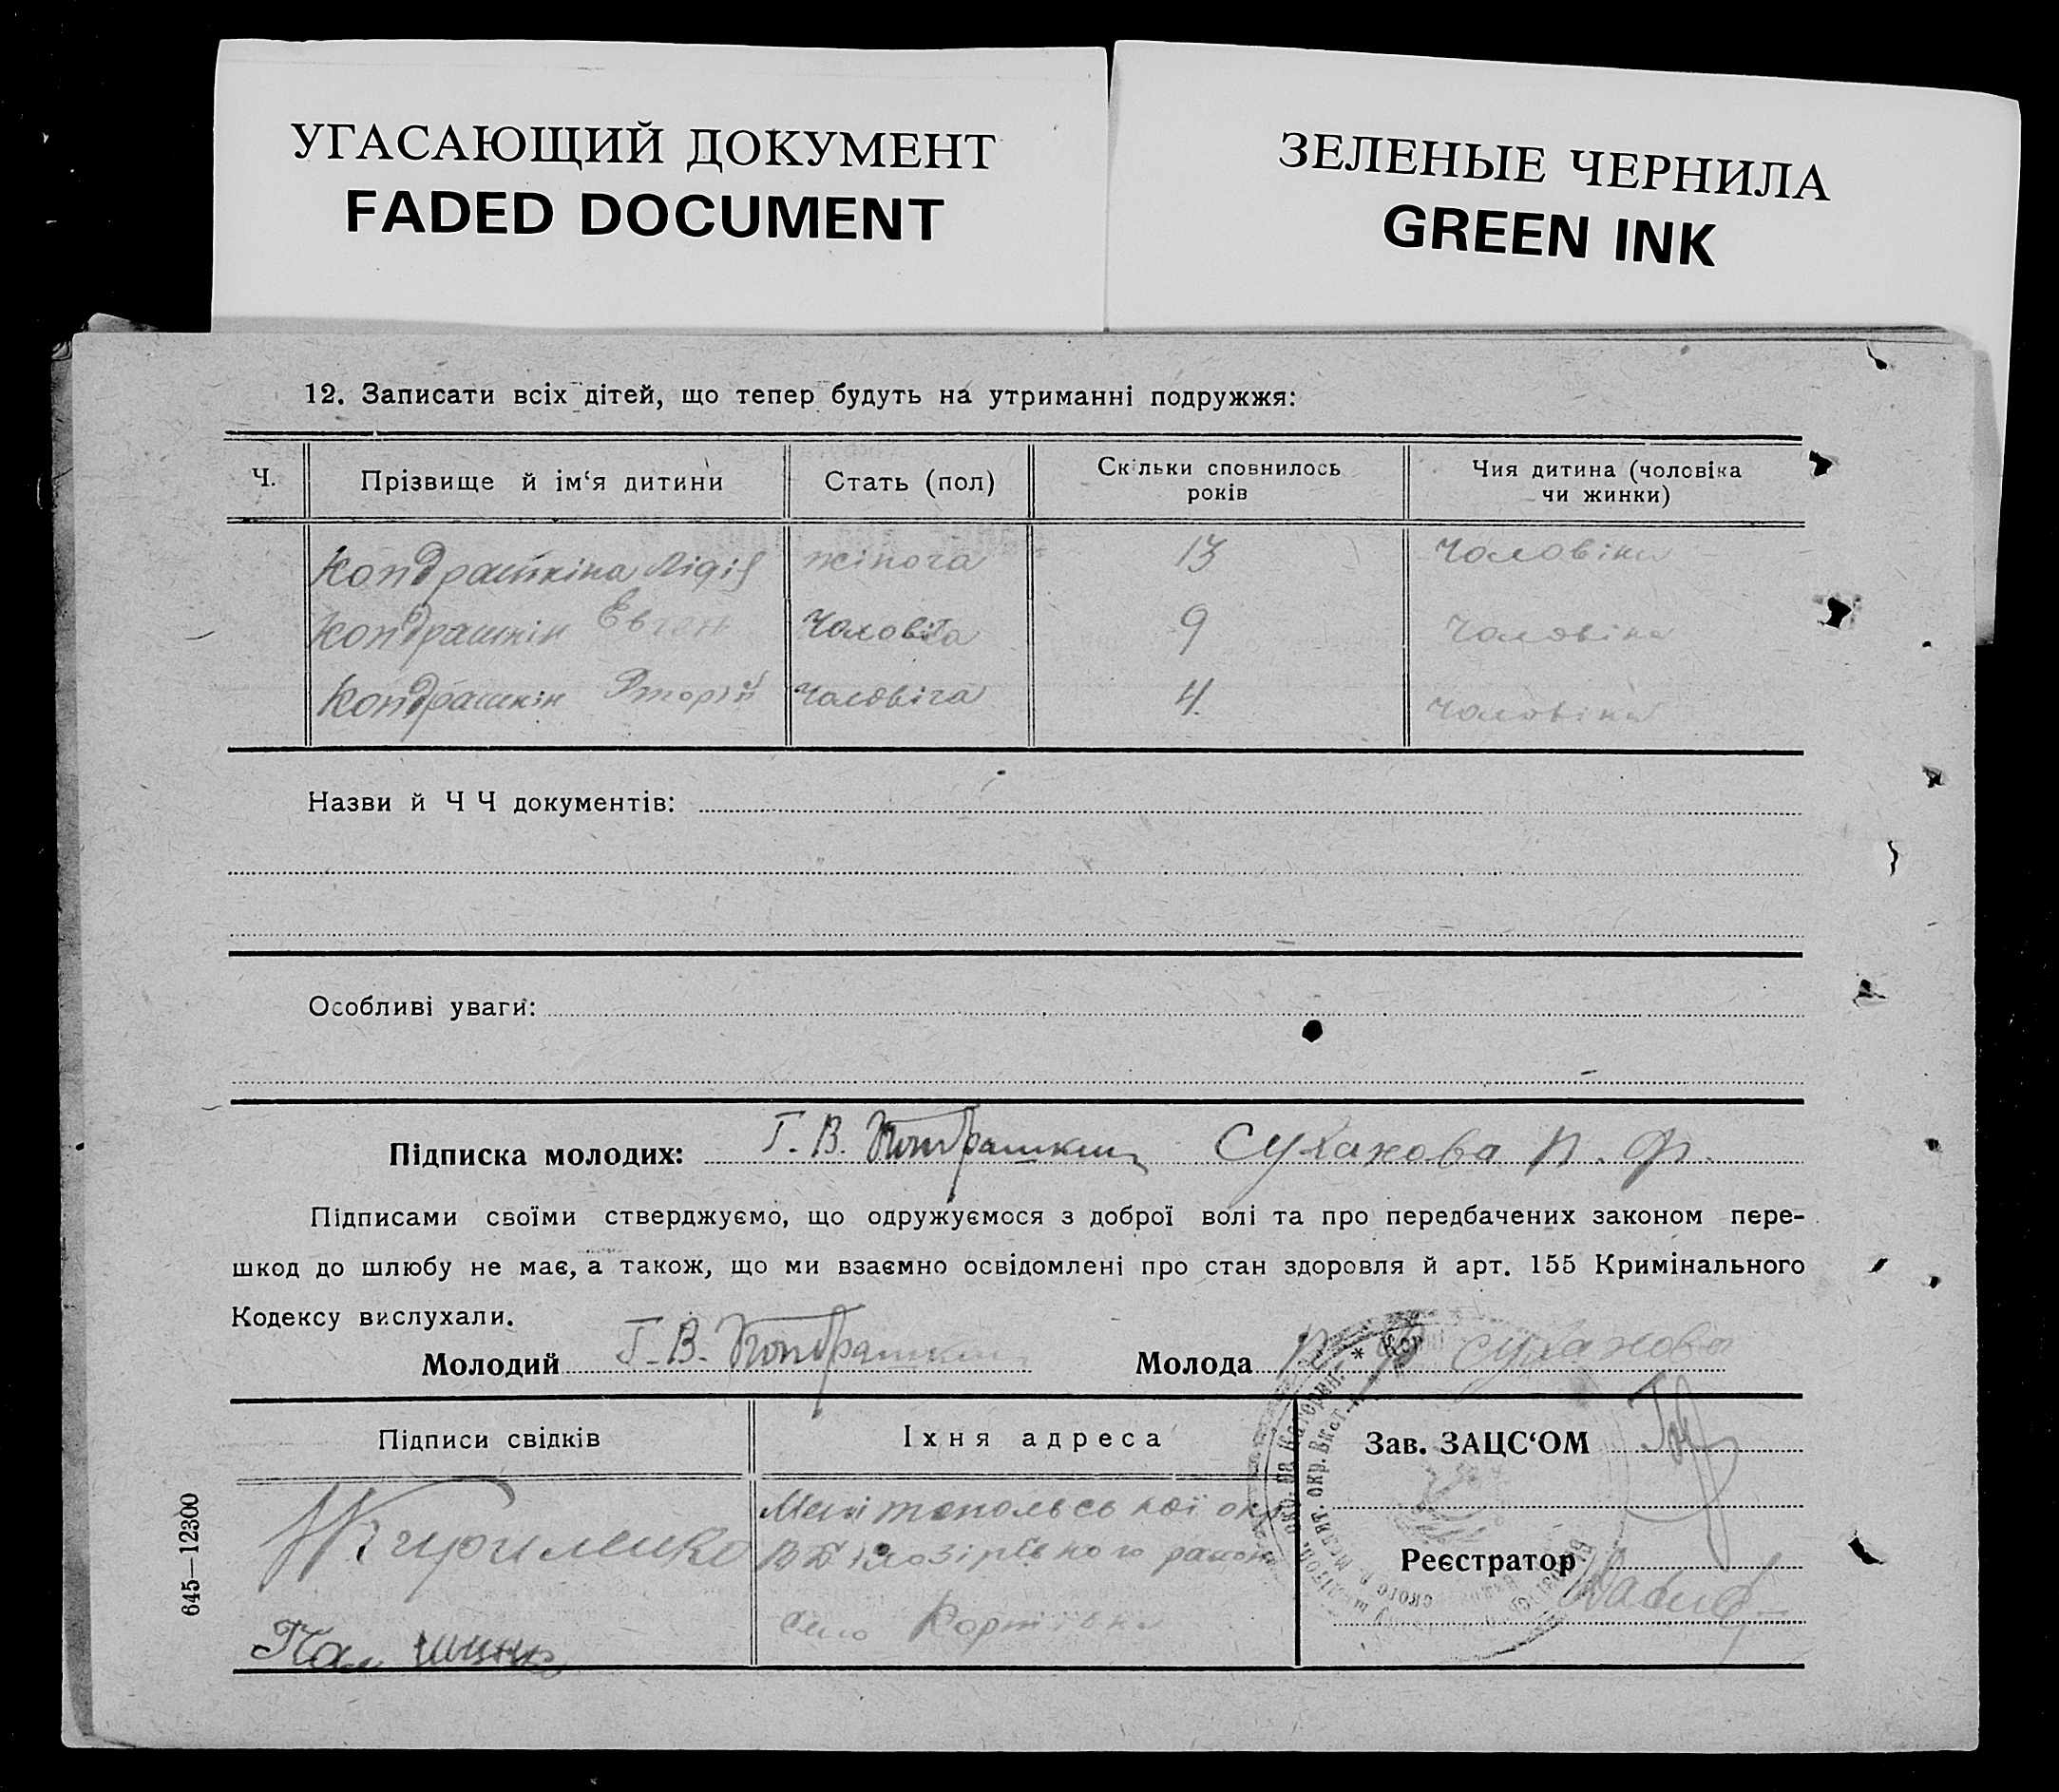 УГАСАЮЩИЙ ДОКУМЕНТ
FADED DOCUMENT
ЗЕЛЕНЫЕ ЧЕРНИЛА
GREEN INK
12. Записати всіх дітей, що тепер будуть на утриманні подружжя:
Ч. Прізвище й ім‘я дитини Стать (пол) Скільки сповнилось років Чия дитина (чоловіка чи жинки)
Кондрашкіна Лідія жіноча 13 Чоловіка
Кондрашкін Евген Чоловіча 9 Чоловіка
Кондрашкін чоловіча 4 чоловіка
Назви й Ч Ч документів:
Особливі уваги:
Підписка молодих: Г. В. Кондрашкин Суханова П. Ф.
Підписами своїми стверджуємо, що одружуємося з доброї волі та про передбачених законом пере-
шкод до шлюбу не має, а також, що ми взаємно освідомлені про стан здоровля й арт. 155 Кримінального
Кодексу вислухали.
Молодий Г. В. Кондрашкин Молода Суханова
Підписи свідків Їхня адреса Зав. ЗАЦС‘ОМ
Реєстратор
село
645—12300